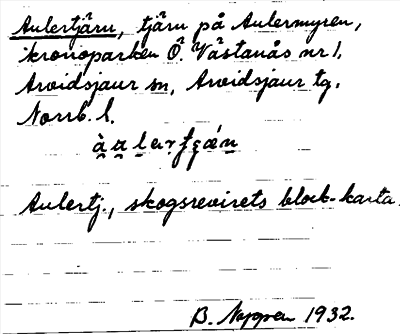 Aulertjärn, tjärn på Aulermyren,
kronoparken Ö. Västanås nr 1,
Arvidsjaur sn, Arvidsjaur tg,
Norrb. l.
Aulertj., skogsrevirets block-karta.
B. Nygren 1932.